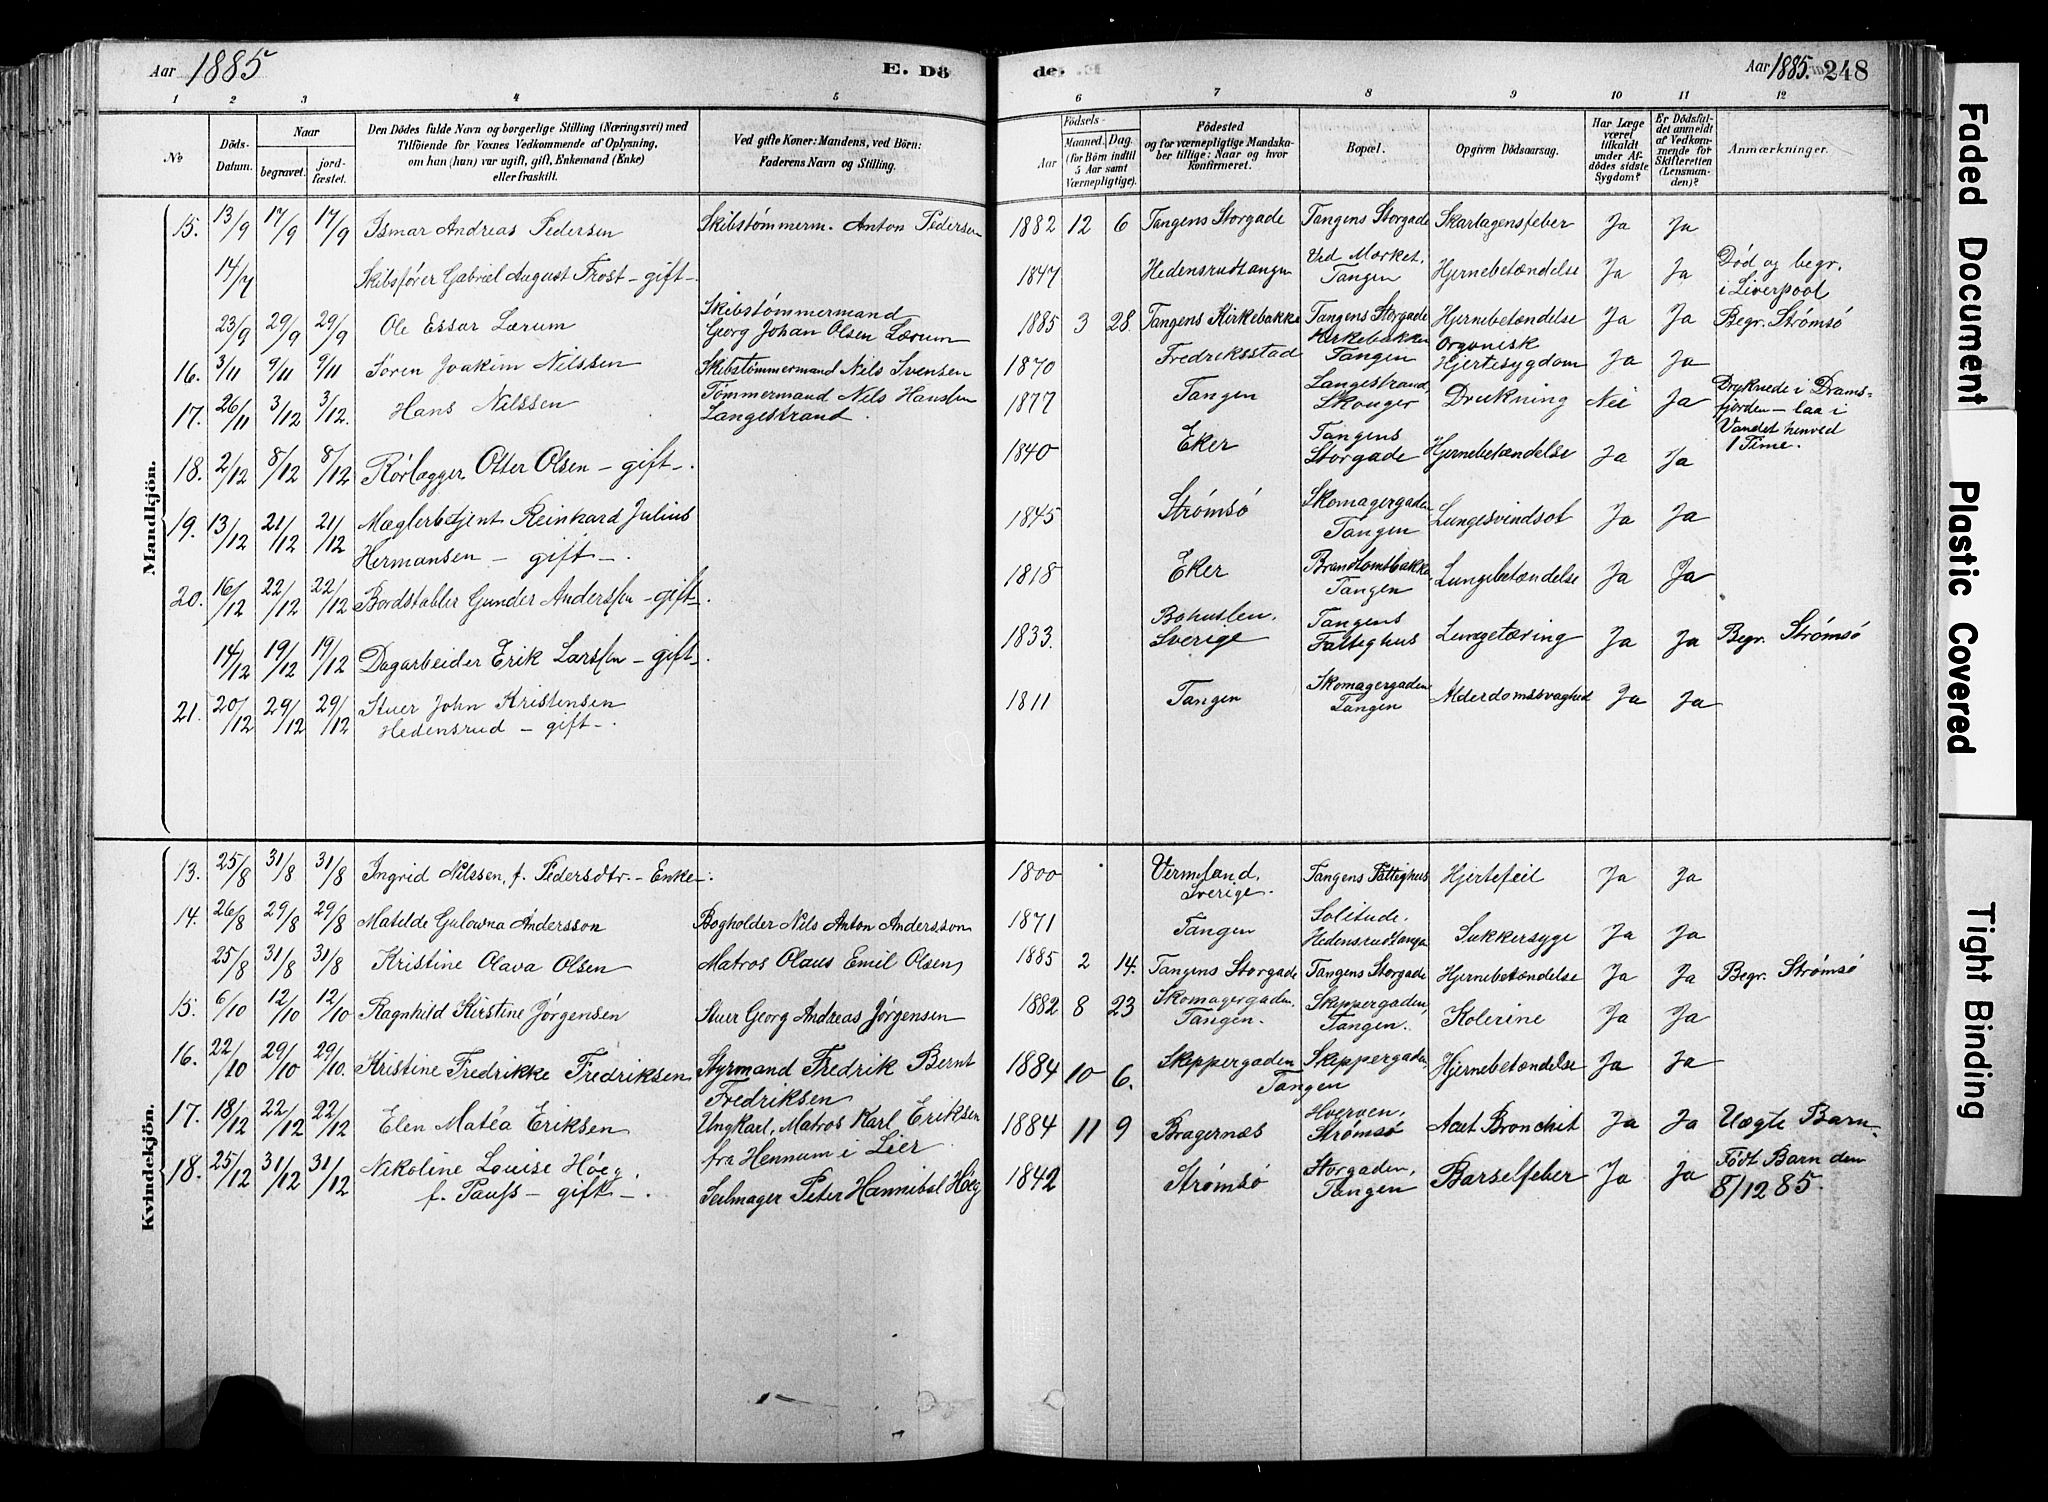 Aar 1885
E. Dö
1 2 3 4 5
No
Döds-Datum.
Naar
begravet.
jord-fæstet.
Den Dödes fulde Navn og borgerlige Stilling (Næringsvei) med
Tilföiende for Voxnes Vedkommende af Oplysning,
om han (hun) var ugift, gift, Enkemand (Enke)
eller fraskilt.
Ved gifte Koner: Mandens, ved Börn:
Faderens Navn og Stilling.
Mandkjön.
15. 13/9 17/9 17/9 Ismar Andreas Pedersen Skibstømmerm. Anton Pedersen
14/7 Skibsfører Gabriel August Frost – gift –
Skibstømmermand
23/9 29/9 29/9 Ole Essar Lærum Georg Johan Olsen Lærum
16. 3/11 9/11 9/11 Søren Joakim Nilssen Skibstømmermand Nils Svensen
17. 26/11 3/12 3/12. Hans Nilssen Tømmermand Nils Hansen
Langestrand
18. 2/12 8/12 8/12 Rørlægger Otter Olsen – gift –.
19. 13/12 21/12 21/12 Mæglerbetjent Reinhard Julius
Hermansen – gift –.
20. 16/12 22/12 22/12 Bordstabler Gunder Anderssen – gift –.
14/12 19/12 19/12 Dagarbeider Erik Larssen – gift –.
21. 20/12 29/12 29/12 Stuer John Kristensen
Hedensrud – gift –.
Kvindekjön.
13. 25/8 31/8 31/8 Ingrid Nilssen, f. Pedersdtr. – Enke –.
14. 26/8 29/8 29/8 Matilde Gulowna Andersson Bogholder Nils Anton Andersson
25/8 31/8 31/8 Kristine Olava Olsen Matros Olaus Emil Olsen
15. 6/10 12/10 12/10 Ragnhild Kirstine Jørgensen Stuer Georg Andreas Jørgensen
16. 22/10 29/10 29/10. Kristine Fredrikke Fredriksen Styrmand Fredrik Bernt
Fredriksen
17. 18/12 22/12 22/12 Elen Matéa Eriksen Ungkarl, Matros Karl Eriksen
fra Hennum i Lier
18. 25/12 31/12 31/12 Nikoline Louise Höeg
f. Pauss – gift –. Seilmager Peter Hannibal Höeg
de.
Aar 1885. 248
6 7 8 9 10 11 12
Födsels-
Aar
Maaned. Dag.
(for Börn indtil
5 Aar samt
Værnepligtige).
Födested
og for værnepligtige Mandska-
ber tillige: Naar og hvor
konfirmeret.
Bopæl.
Opgiven Dödsaarsag.
Har Læge
været
tilkaldt
under Af-
dödes sidste
Sygdom?
Er Dödsfal-
det anmeldt
af Vedkom-
mende for
Skifteretten
(Lensman-
den)?
Anmærkninger.
1882 12 6 Tangens Storgade Tangens Storgade Skarlagensfeber Ja Ja
1847 Hedensrudtangen Ved Market, Tangen Hjernebetændelse Ja Ja Død og begr.
i Liverpool
1885 3 28 Tangens Kirkebakke Tangens Storgade Hjernebetændelse Ja Ja Begr. Strømsö
1870 Fredriksstad Kirkebakken Tangen Organisk Hjertesygdom Ja Ja
1877 Tangen Langestrand, Skouger Drukning Nei Ja Druknede i Drams-
fjorden – laa i
Vandet henved
1 Time.
1840 Eker Tangens Storgade Hjernebetændelse Ja Ja
1845 Strømsö Skomagergaden Tangen Lungesvindsot Ja Ja
1818 Eker Tangen Lungebetændelse Ja Ja
1833. Bohuslen, Sverige Tangens Fattighus Lungetæring Ja Ja Begr. Strømsö
1811 Tangen Skomagergaden Tangen Alderdomssvaghed Ja Ja
1800 Vermland, Sverige. Tangens Fattighus Hjertefeil Ja Ja
1871 Tangen Solitude, Hedensrudtangen Sukkersyge Ja Ja
1885 2 14. Tangens Storgade Tangens Storgade Hjernebetændelse Ja Ja Begr. Strømsö
1882 8 23 Skomagergaden, Tangen. Skippergaden, Tangen. Kolerine Ja Ja
1884 10 6. Skippergaden Skippergaden Tangen Hjernebetændelse Ja Ja
1884 11 9 Bragernæs Hverven, Strømsö Acut Bronchit Ja Ja Uægte Barn.
1842 Strømsö Storgaden, Tangen Barselfeber Ja Ja Født Barn den
8/12 85.
Faded Document
Plastic Covered
Tight Binding